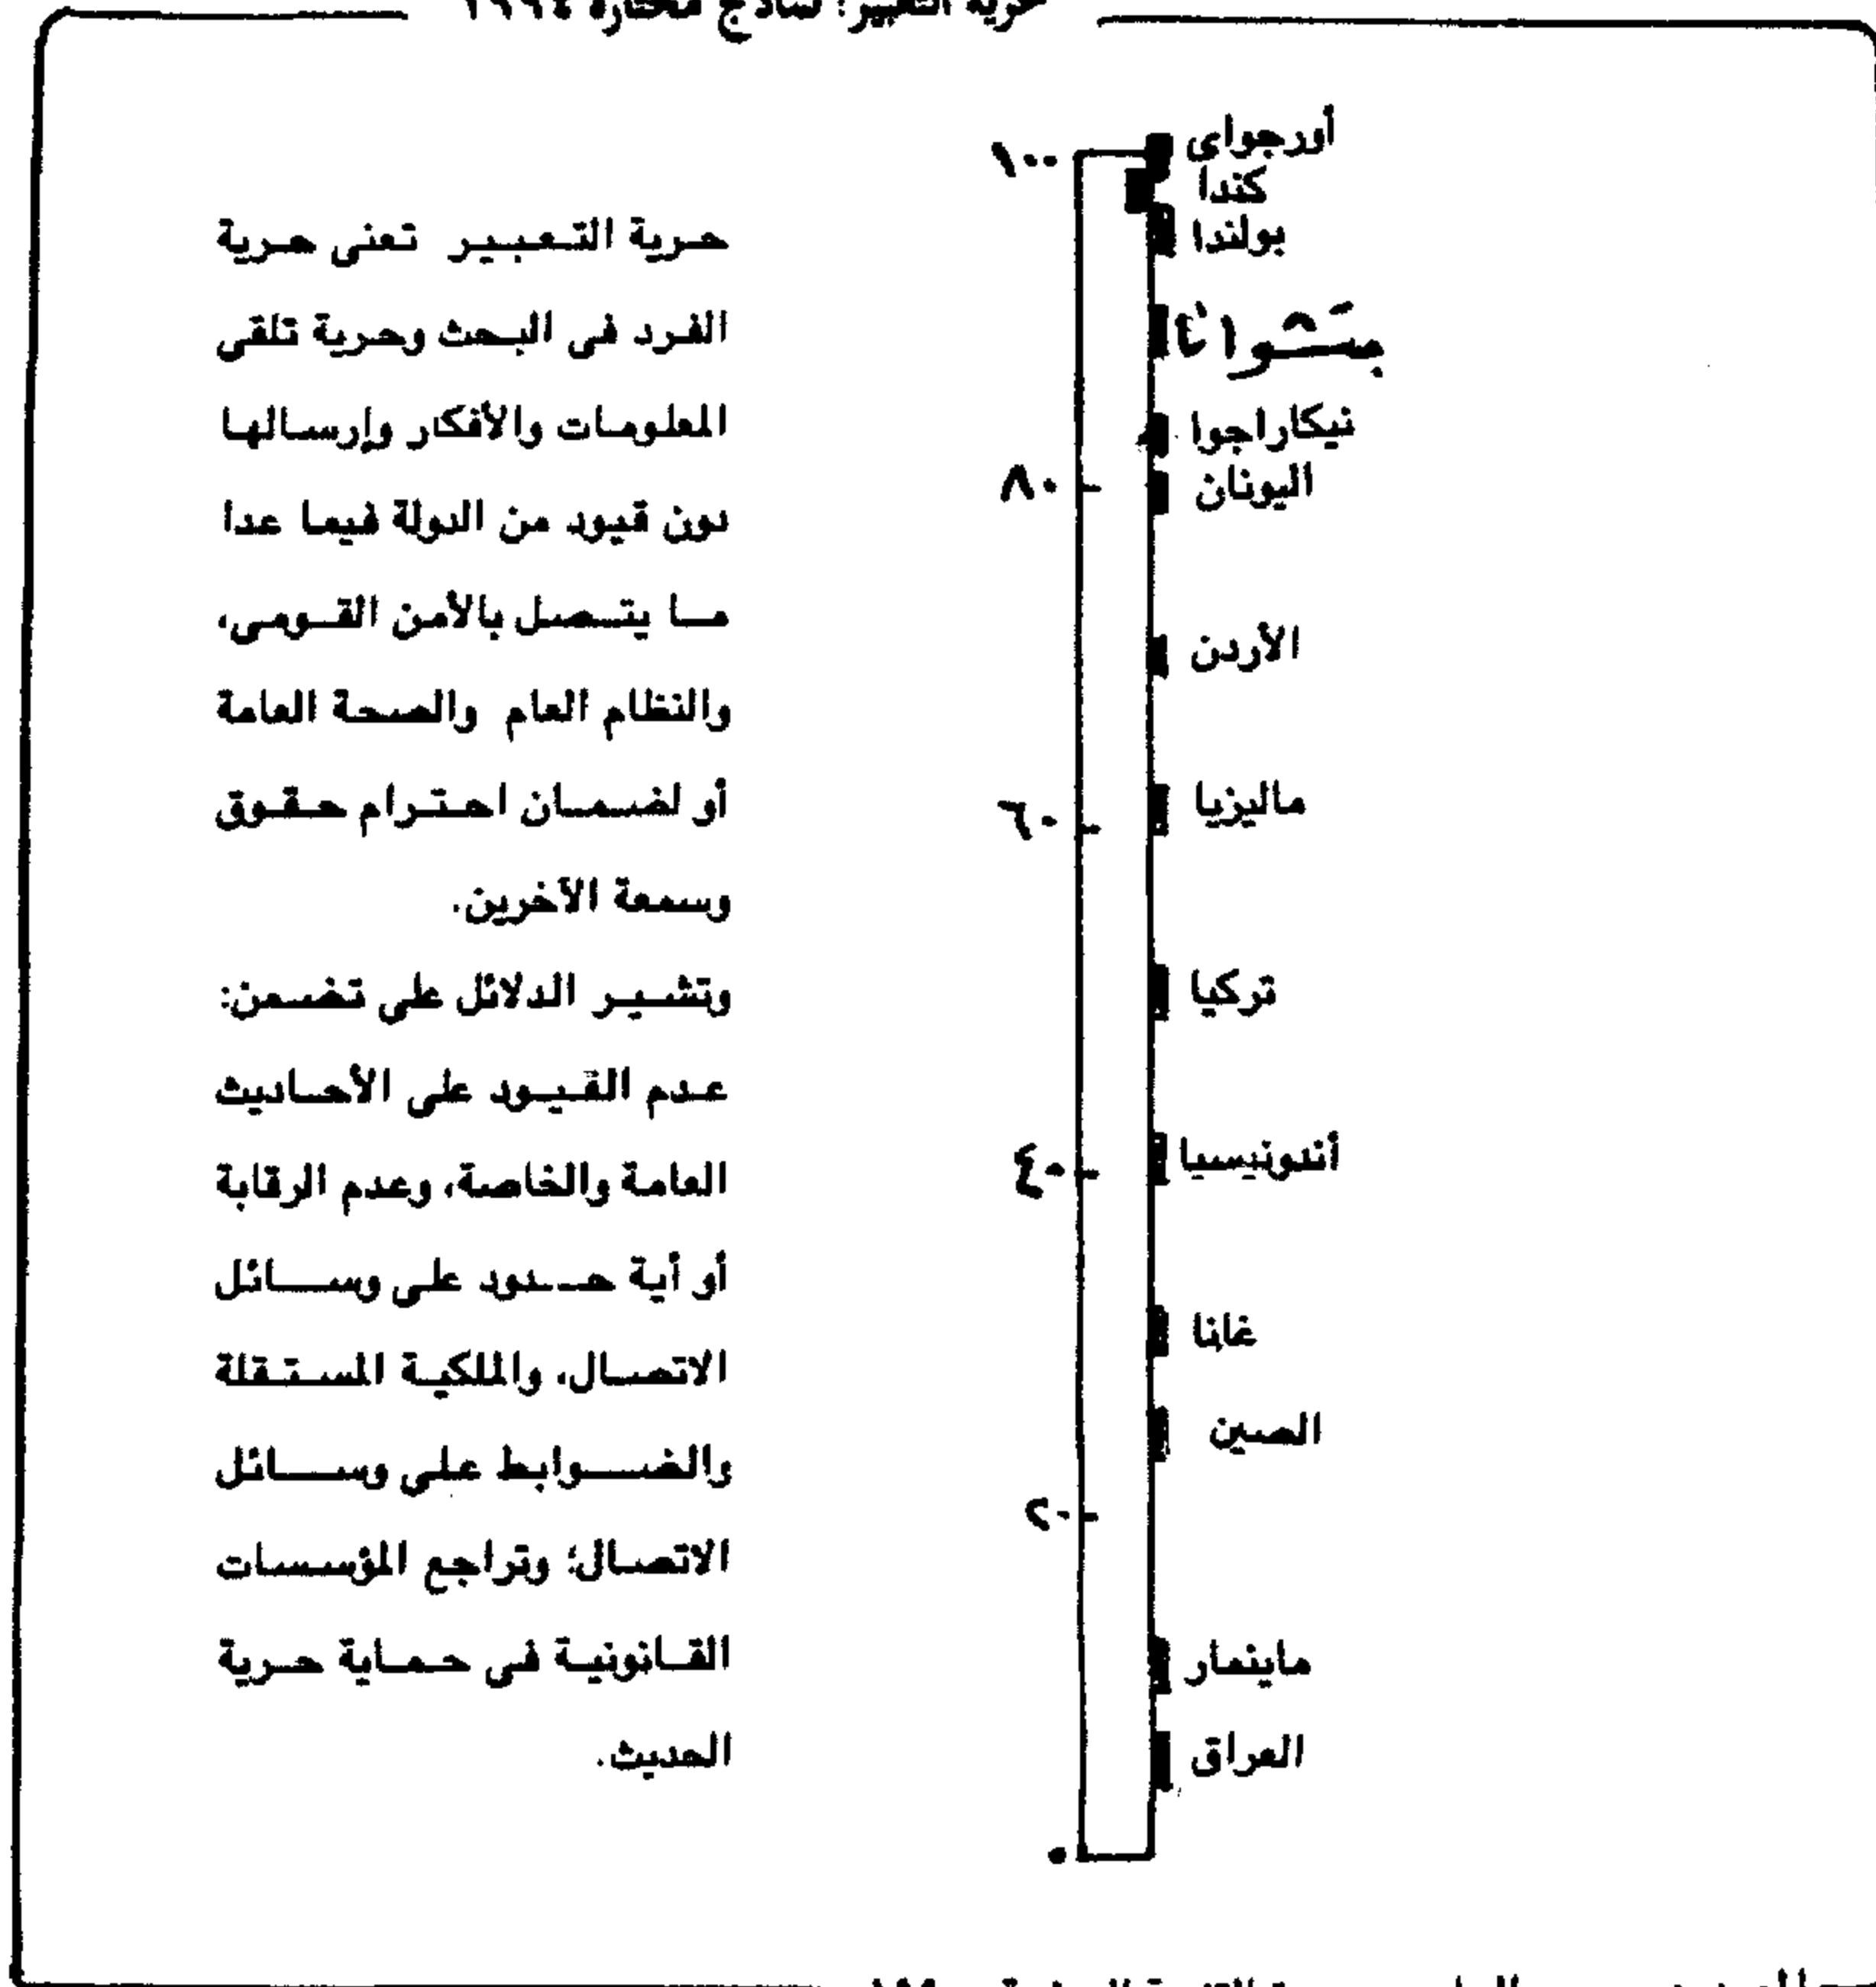 حرية التعبير: نماذج مختارة ١٩٩٤
أورجواى
١٠٠
كندا
بولندا
نيكاراجوا
اليونان
٨٠
الأردن
ماليزيا
٦٠
تركيا
أندونيسيا
٤٠
غانا
الصين
٢٠
ماينمار
العراق
٠
حرية التعبير تعنى حرية
الفرد فى البحث وحرية تلقى
المعلومات والأفكار وإرسالها
دون قيود من الدولة فيما عدا
ما يتصل بالأمن القومى،
والنظام العام والصحة العامة
أو لضمان احترام حقوق
وسمعة الآخرين.
وتشير الدلائل على تضمن:
عدم القيود على الأحاديث
العامة والخاصة، وعدم الرقابة
أو أية حدود على وسائل
الاتصال، والملكية المستقلة
والضوابط على وسائل
الاتصال؛ وتراجع المؤسسات
القانونية فى حماية حرية
الحديث.